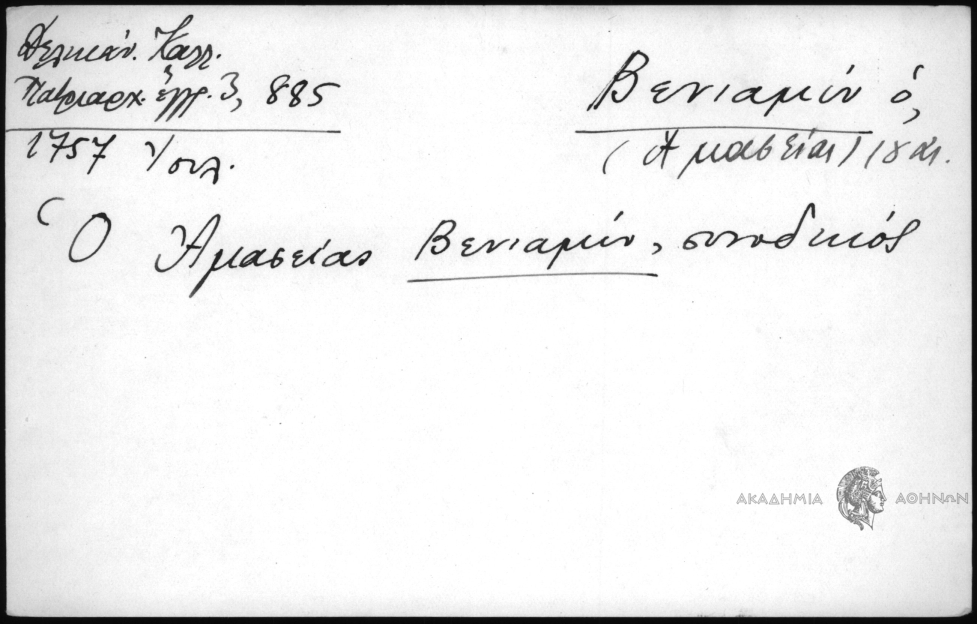 Δελικάν. Καλλ.
Πατριαρχ. ἔγγρ. 3, 885
1757 Ἰουλ.
Βενιαμίν ὁ,
(Ἀμασείας) 18 αι.
Ὁ Ἀμασείας Βενιαμίν, συνοδικός
ΑΚΑΔΗΜΙΑ ΑΘΗΝΩΝ